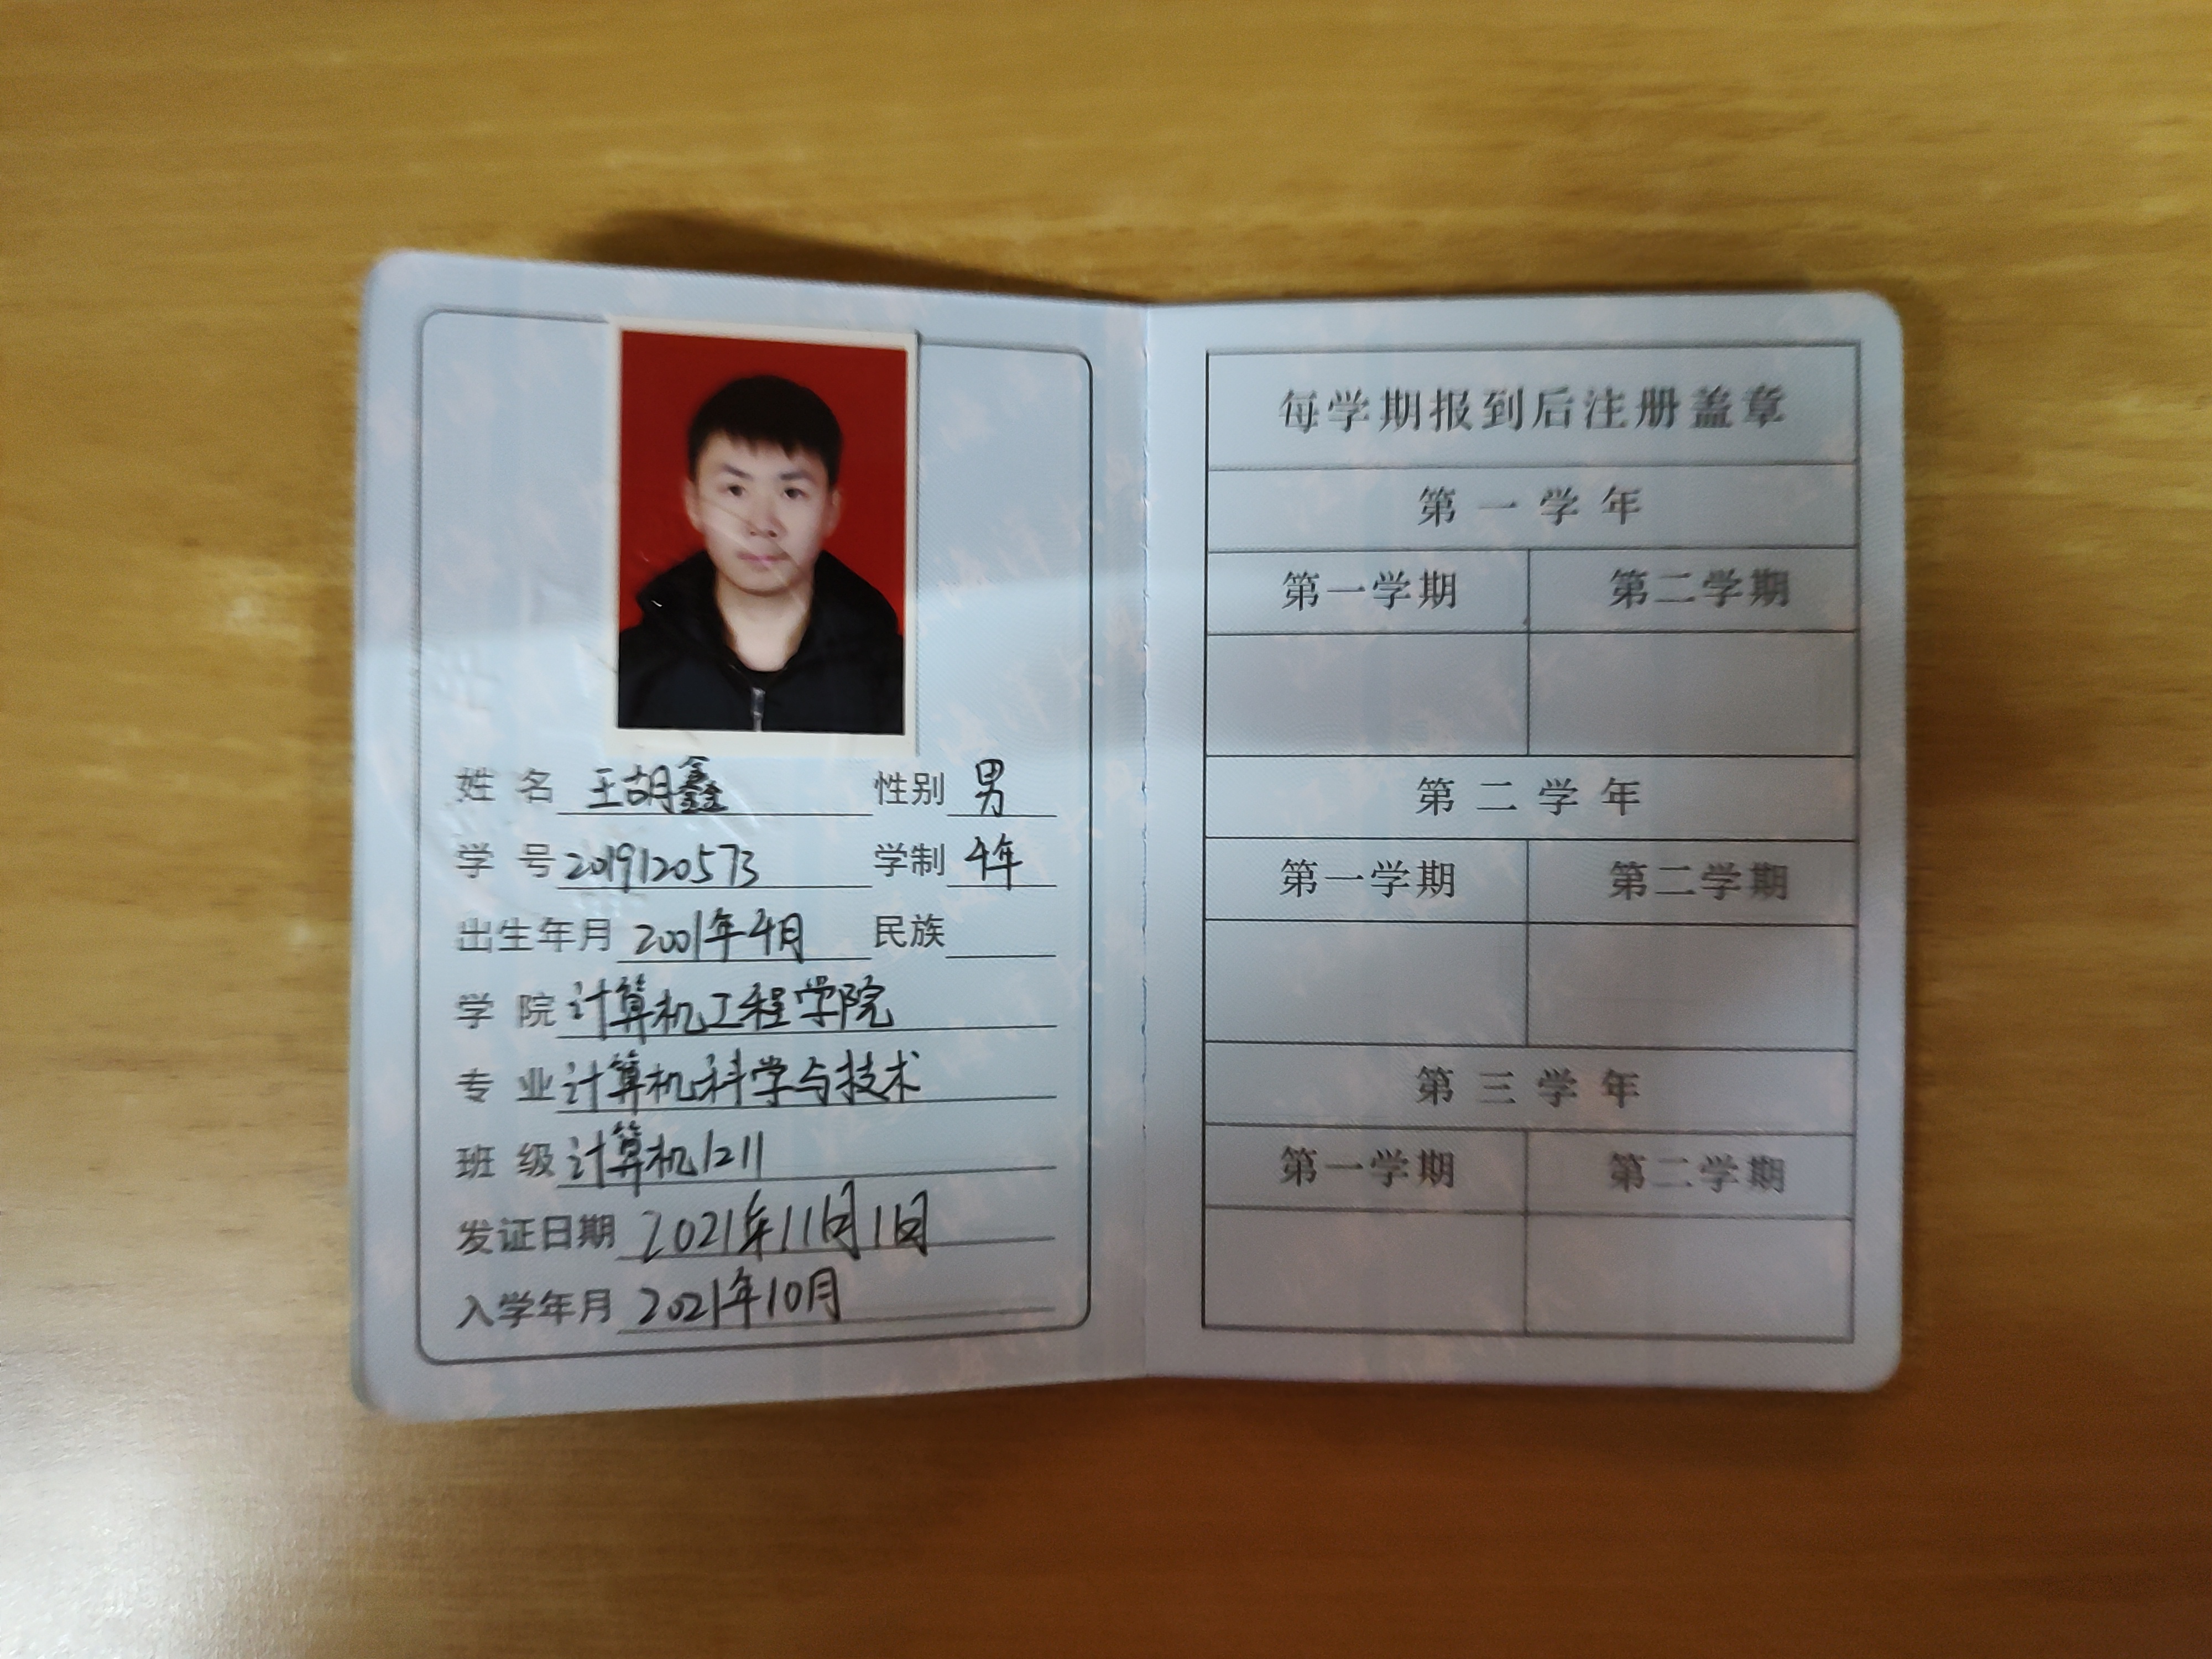 姓 名 王胡鑫 性别 男
学 号 2019120573 学制 4年
出生年月 2001年4月 民族
学 院 计算机工程学院
专 业 计算机科学与技术
班 级 计算机1211
发证日期 2021年11月1日
入学年月 2021年10月
每学期报到后注册盖章
第 一 学 年
第一学期 第二学期
第 二 学 年
第一学期 第二学期
第 三 学 年
第一学期 第二学期